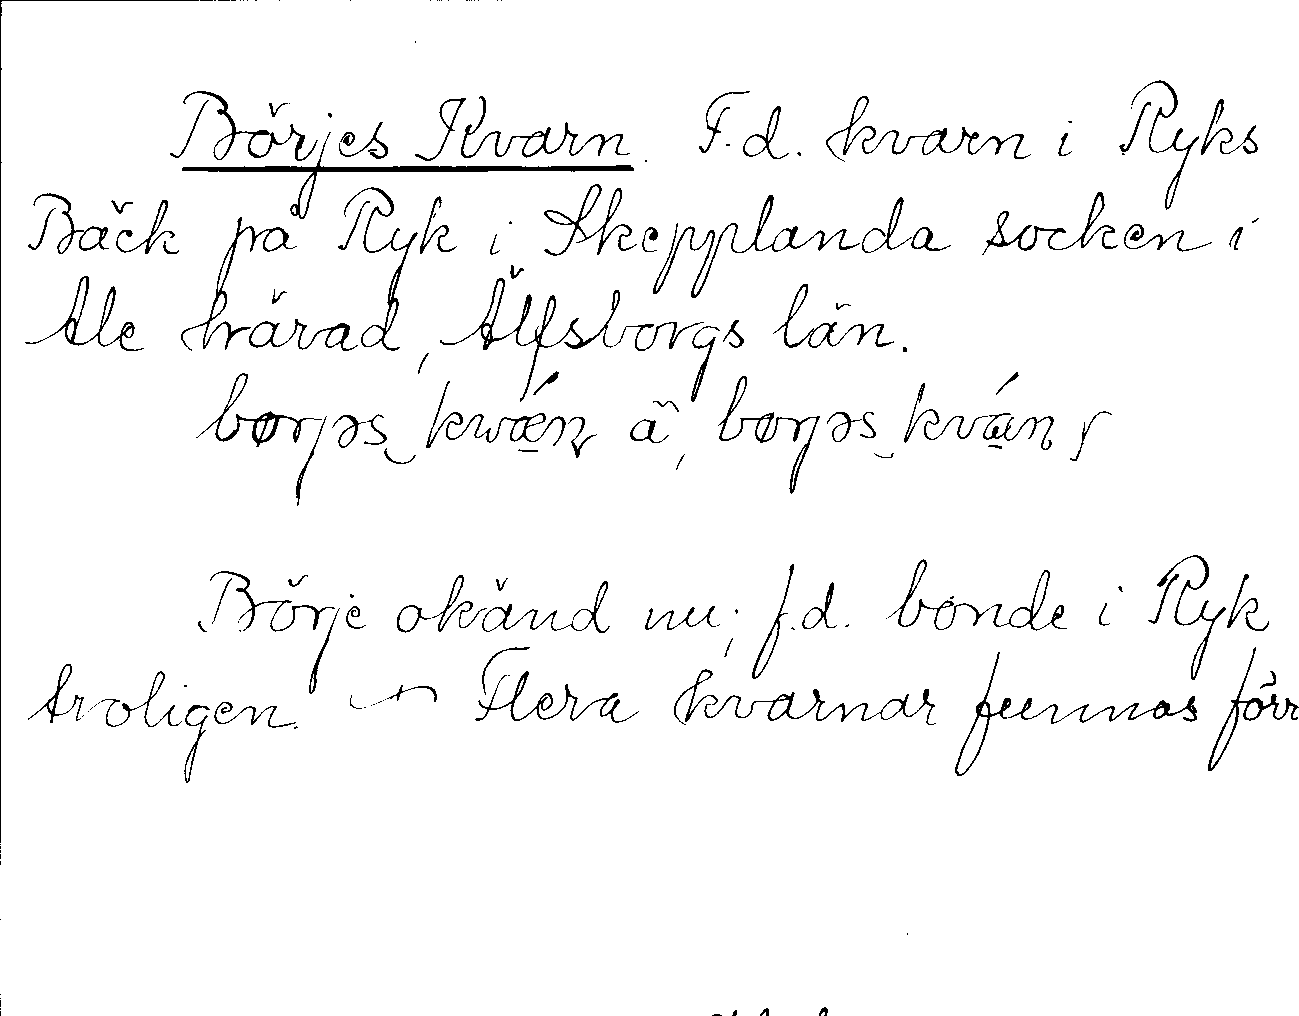 Börjes Kvarn. F.d. kvarn i Ryks
Bäck på Ryk i Skepplanda socken i
Ale härad, Älfsborgs län.
Börje okänd nu; f.d. bonde i Ryk
troligen. — Flera kvarnar funnos förr